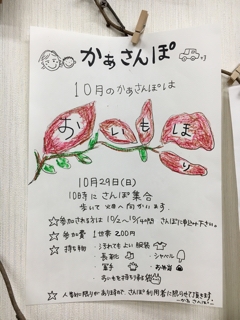 かぁさんぽ
10月のかぁさんぽは
おいもほり
10月29日(日)
10時にさんぽ集合
歩いて畑へ向かいます。
☆参加される方は10/2～10/14の間さんぽに申込み下さい。
☆参加費 1世帯200円
☆持ち物・汚れてもよい服装
・長靴 ・シャベル
・軍手 ・お弁当
・おいもを持ち帰る袋
☆人数に限りがありますので、さんぽ利用者に限らせて頂きます。